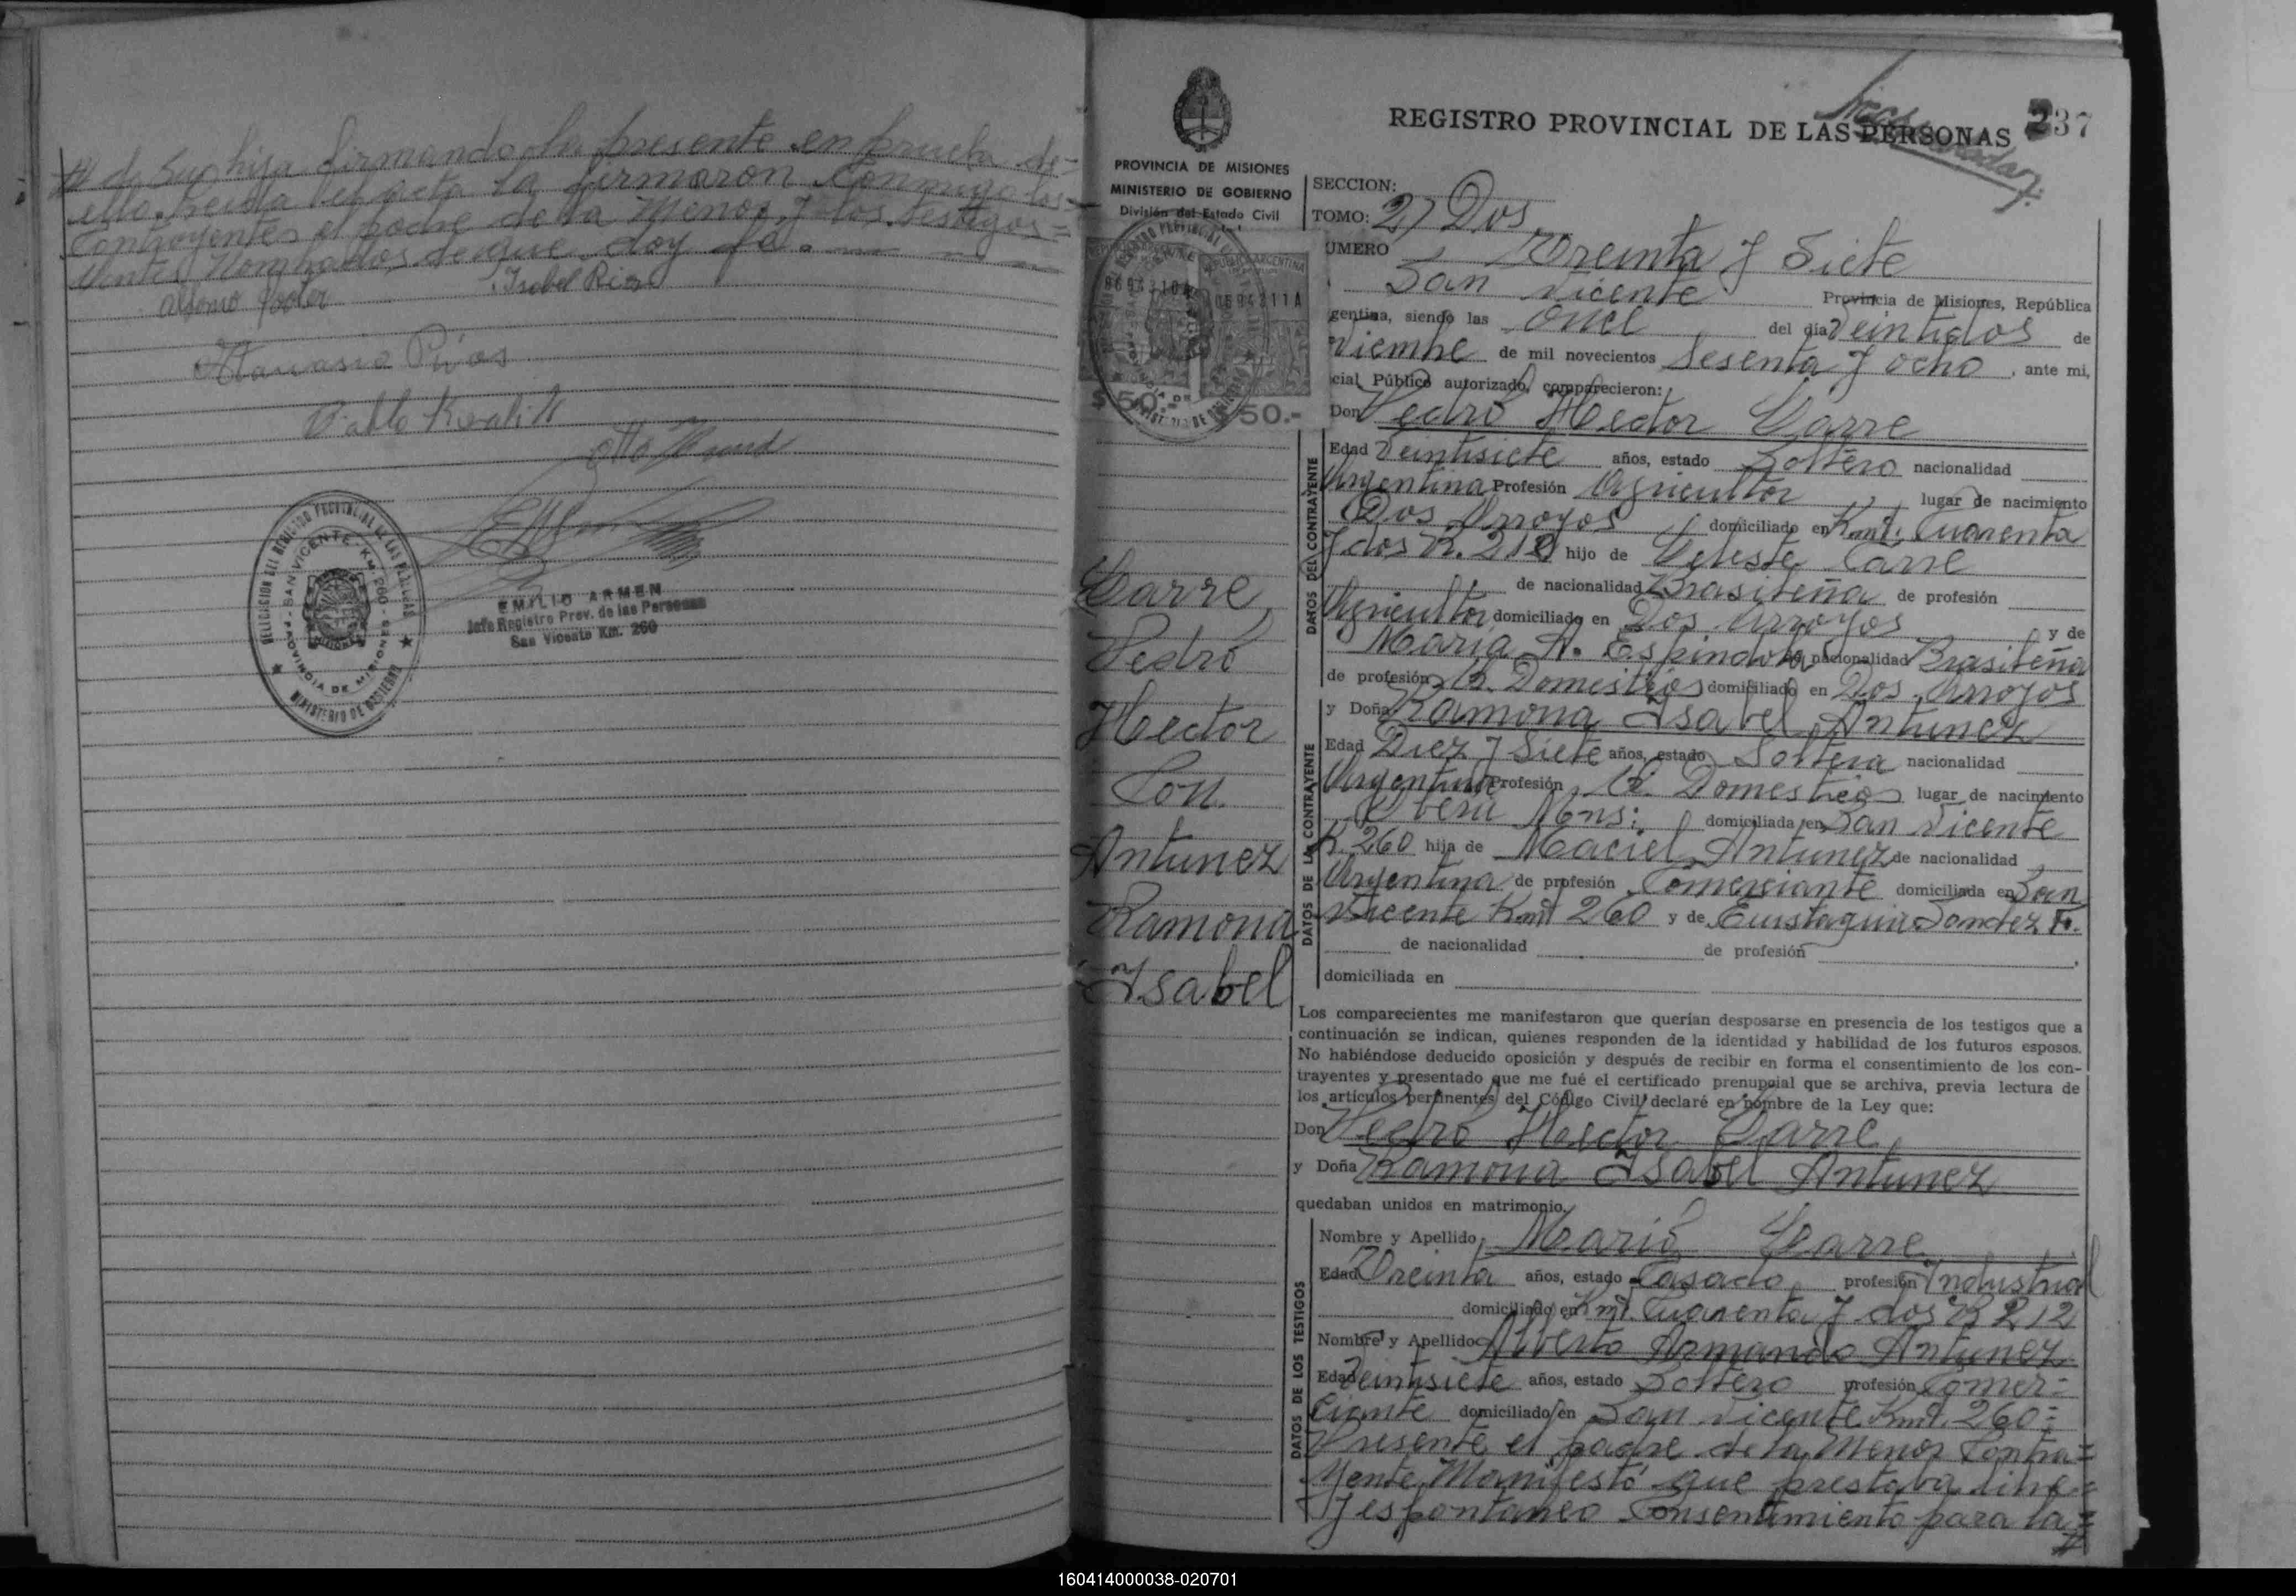 # de Su hija firmando la presente en prueba de=
ello. Leida el acta la firmaron conmigo los=
Contrayentes el padre de la Menor, y los testigos=
Antes Nombrados de que doy fé.
Isabel Rios
Atanasia Rios
Pablo
Otto
DELEGACION DEL REGISTRO PROVINCIAL DE LAS PERSONAS
SAN VICENTE - KM. 260 -
PROVINCIA DE MISIONES
MINISTERIO DE GOBIERNO
EMILIO ARMEN
Jefe Registro Prov. de las Personas
San Vicente Km. 260
REGISTRO PROVINCIAL DE LAS PERSONAS 237
PROVINCIA DE MISIONES
MINISTERIO DE GOBIERNO
División del Estado Civil
REPUBLICA ARGENTINA
0694211A
$50.- 50.-
Carre
Pedro
Hector
Con
Antunez
Ramona
Isabel
SECCION:
TOMO: 2) Dos
UMERO Treinta y Siete
San Vicente Provincia de Misiones, República
gentina, siendo las Once del día Veintidos de
viembre de mil novecientos Sesenta y ocho, ante mi,
cial Público autorizado, comparecieron:
Don Pedro Hector Carre
DATOS DEL CONTRAYENTE
Edad Veintisiete años, estado Soltero nacionalidad
Argentina Profesión Agricultor, lugar de nacimiento
Dos Arroyos domiciliado en Kmt. Cuarenta
y dos R. 212 hijo de Celeste Carre
de nacionalidad Brasileña de profesión
Agricultor domiciliado en Dos Arroyos y de
Maria A. Espindola nacionalidad Brasileña
de profesión Q. Domesticos domiciliado en Dos Arroyos
y Doña Ramona Isabel Antunez
DATOS DE LA CONTRAYENTE
Edad Diez y Siete años, estado Soltera nacionalidad
Argentina Profesión Q. Domesticos lugar de nacimiento
Oberá Mns: domiciliada en San Vicente
K. 260 hija de Maciel Antunez de nacionalidad
Argentina de profesión Comerciante domiciliada en San
Vicente Kmt 260 y de Eustaquia Sanchez F.
de nacionalidad de profesión
domiciliada en
Los comparecientes me manifestaron que querían desposarse en presencia de los testigos que a
continuación se indican, quienes responden de la identidad y habilidad de los futuros esposos.
No habiéndose deducido oposición y después de recibir en forma el consentimiento de los con-
trayentes y presentado que me fué el certificado prenupcial que se archiva, previa lectura de
los artículos pertinentes del Código Civil declaré en nombre de la Ley que:
Don Pedro Hector Carre,
y Doña Ramona Isabel Antunez
quedaban unidos en matrimonio.
DATOS DE LOS TESTIGOS
Nombre y Apellido Mario Carre
Edad Treinta años, estado Casado profesión Industrial
domiciliado en Kmt. Cuarenta y dos R 212
Nombre y Apellido Alberto Armando Antunez
Edad Veintisiete años, estado Soltero profesión Comer=
ciante domiciliado en San Vicente Kmt. 260=
Presente el padre de la Menor Contra=
yente Manifestó que prestaba libre=
y espontaneo Consentimiento para la=
#
160414000038-020701